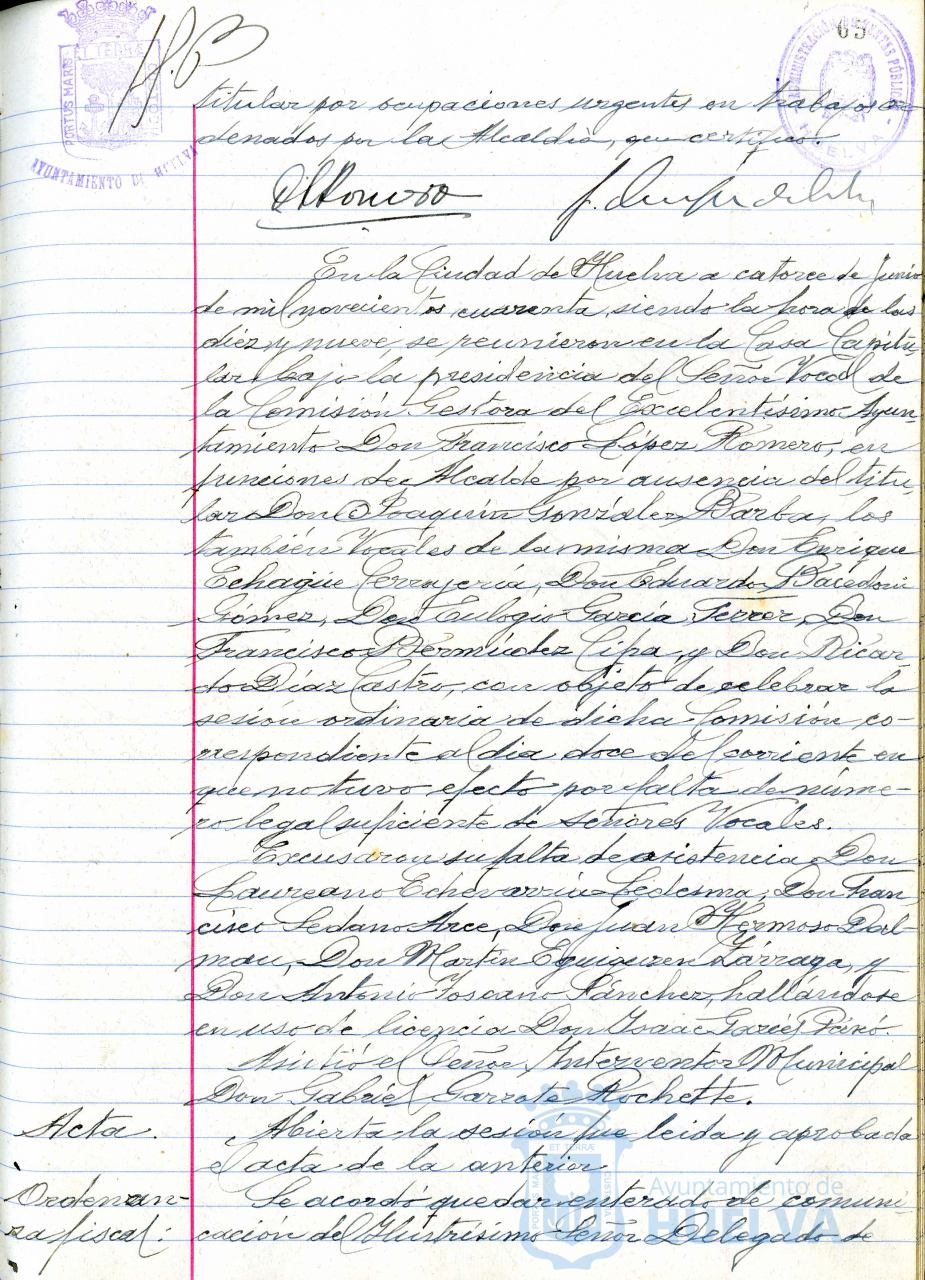 65
ET TERRÆ
PORTUS MARIS
AYUNTAMIENTO DE HUELVA
HUELVA
titular por ocupaciones urgentes en trabajos or-
denados por la Alcaldía, que certifico.
En la Ciudad de Huelva a catorce de Junio
de mil novecientos cuarenta, siendo la hora de las
diez y nueve, se reunieron en la Casa Capitu-
lar bajo la presidencia del Señor Vocal de
la Comisión Gestora del Excelentísimo Ayun-
tamiento Don Francisco López Romero, en
funciones de Alcalde por ausencia del titu-
lar Don Joaquín González Barba, los
también Vocales de la misma Don Enrique
Echagüe Cerrajería, Don Eduardo
Gómez, Don Eulogio García Ferrer, Don
Francisco Bermúdez Cipa, y Don Ricar-
do Díaz Castro, con objeto de celebrar la
sesión ordinaria de dicha Comisión co-
rrespondiente al día doce del corriente en
que no tuvo efecto por falta de núme-
ro legal suficiente de señores Vocales.
Excusaron su falta de asistencia Don
Laureano Echevarría Ledesma, Don Fran-
cisco Sedano Arce, Don Juan Hermoso Dal-
mau, Don Martín Eguiguren Zárraga, y
Don Antonio Toscano Sánchez, hallándose
en uso de licencia Don Isaac
Asistió el Señor Interventor Municipal
Don Gabriel Garrote Rochette.
Acta.
Abierta la sesión fue leida y aprobada
el acta de la anterior
Ordenan-
za fiscal.
Se acordó quedar enterado de comuni-
cación del Ilustrísimo Señor Delegado de
Ayuntamiento de
HUELVA